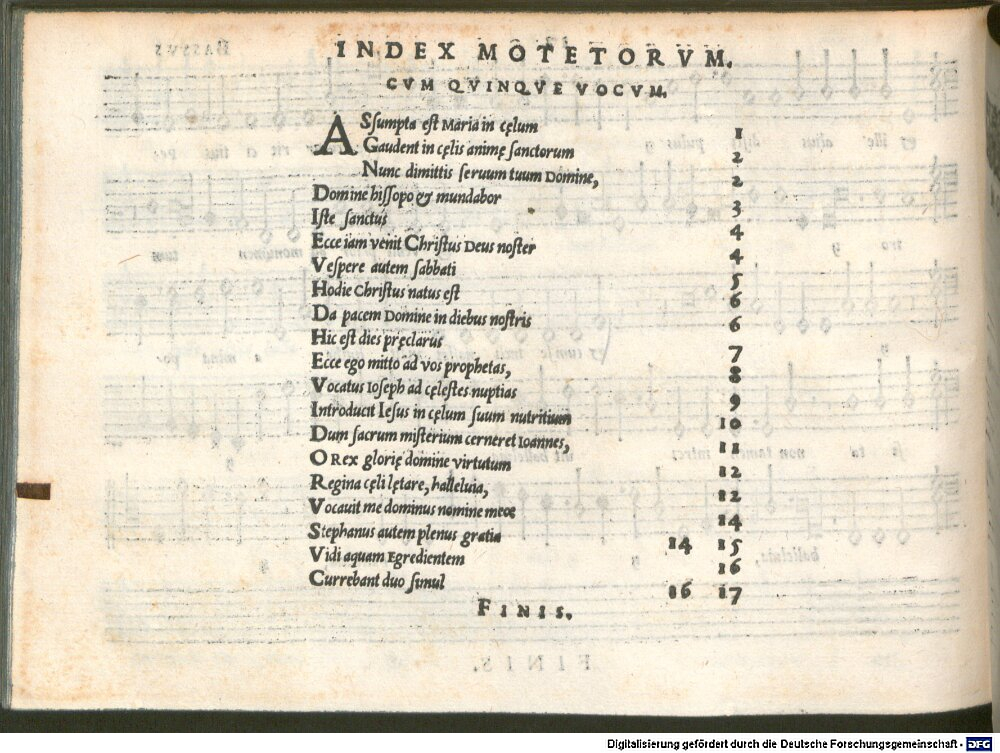 INDEX MOTETORVM.
CVM QVINQVE VOCVM.
ASſumpta eſt Maria in cęlum 1
Gaudent in cęlis animę ſanctorum 2
Nunc dimittis ſeruum tuum Domine, 2
Domine hiſſopo & mundabor 3
Iſte ſanctus 4
Ecce iam venit Chriſtus Deus noſter 4
Veſpere autem ſabbati 5
Hodie Chriſtus natus eſt 6
Da pacem Domine in diebus noſtris 6
Hic eſt dies pręclarus 7
Ecce ego mitto ad vos prophetas, 8
Vocatus Ioſeph ad cęleſtes nuptias 9
Introducit Ieſus in cęlum ſuum nutritium 10
Dum ſacrum miſterium cerneret Ioannes, 11
O Rex glorię domine virtutum 12
Regina cęli lętare, halleluia, 12
Vocauit me dominus nomine meoe 14
Stephanus autem plenus gratia 14 15
Vidi aquam Egredientem 16
Currebant duo ſimul 16 17
FINIS.
Digitalisierung gefördert durch die Deutsche Forschungsgemeinschaft - DFG